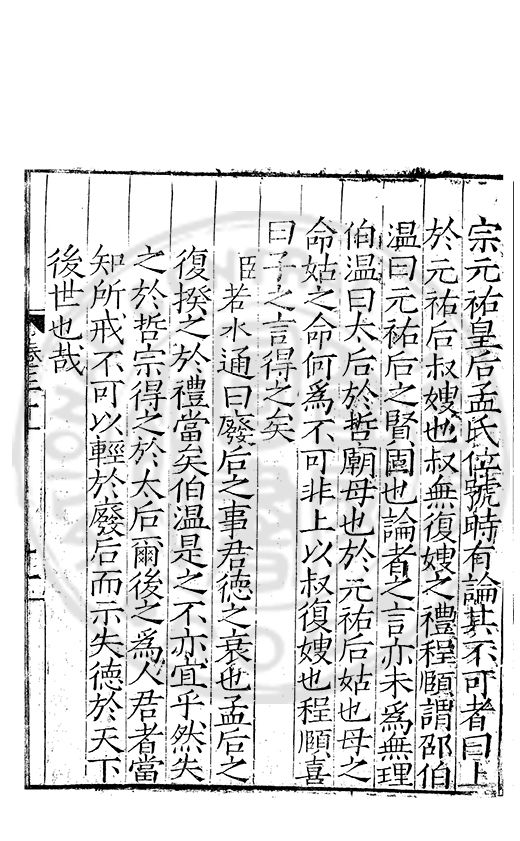 宗元祐皇后孟氏位號時有論其不可者曰上
於元祐后叔嫂也叔無復嫂之禮程頤謂邵伯
温曰元祐后之賢固也論者之言亦未為無理
伯温曰太后於哲廟母也於元祐后姑也母之
命姑之命何為不可非上以叔復嫂也程頤喜
曰子之言得之矣
臣若水通曰廢后之事君德之衰也孟后之
復揆之於禮當矣伯温是之不亦宜乎然失
之於哲宗得之於太后爾後之為人君者當
知所戒不可以輕於廢后而示失德於天下
後世也哉